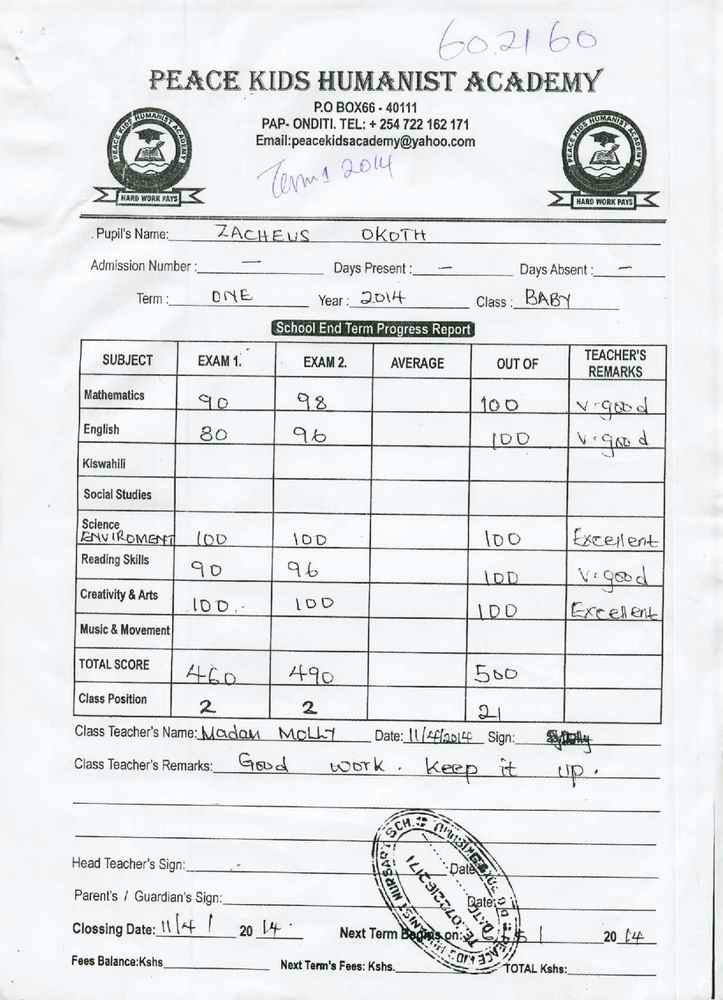 60.2160
PEACE KIDS HUMANIST ACADEMY
P.O BOX66 - 40111
PAP- ONDITI. TEL: + 254 722 162 171
Email:peacekidsacademy@yahoo.com
Term 1 2014
PEACE KIDS HUMANIST ACADEMY
HARD WORK PAYS
PEACE KIDS HUMANIST ACADEMY
HARD WORK PAYS
Pupil's Name: ZACHEUS OKOTH
Admission Number : — Days Present : — Days Absent : —
Term : ONE Year : 2014 Class : BABY
School End Term Progress Report
SUBJECT EXAM 1. EXAM 2. AVERAGE OUT OF TEACHER'S REMARKS
Mathematics 90 98 100 V.good
English 80 96 100 V.good
Kiswahili
Social Studies
Science
ENVIROMENT 100 100 100 Excellent
Reading Skills 90 96 100 V.good
Creativity & Arts 100 100 100 Excellent
Music & Movement
TOTAL SCORE 460 490 500
Class Position 2 2 21
Class Teacher's Name: Madam MOLLY Date: 11/4/2014 Sign:
Class Teacher's Remarks: Good work. Keep it up.
Head Teacher's Sign: Date:
Parent's / Guardian's Sign: Date:
Clossing Date: 11/4/ 2014. Next Term Begins on: 5/ 2014
Fees Balance:Kshs. Next Term's Fees: Kshs. TOTAL Kshs: